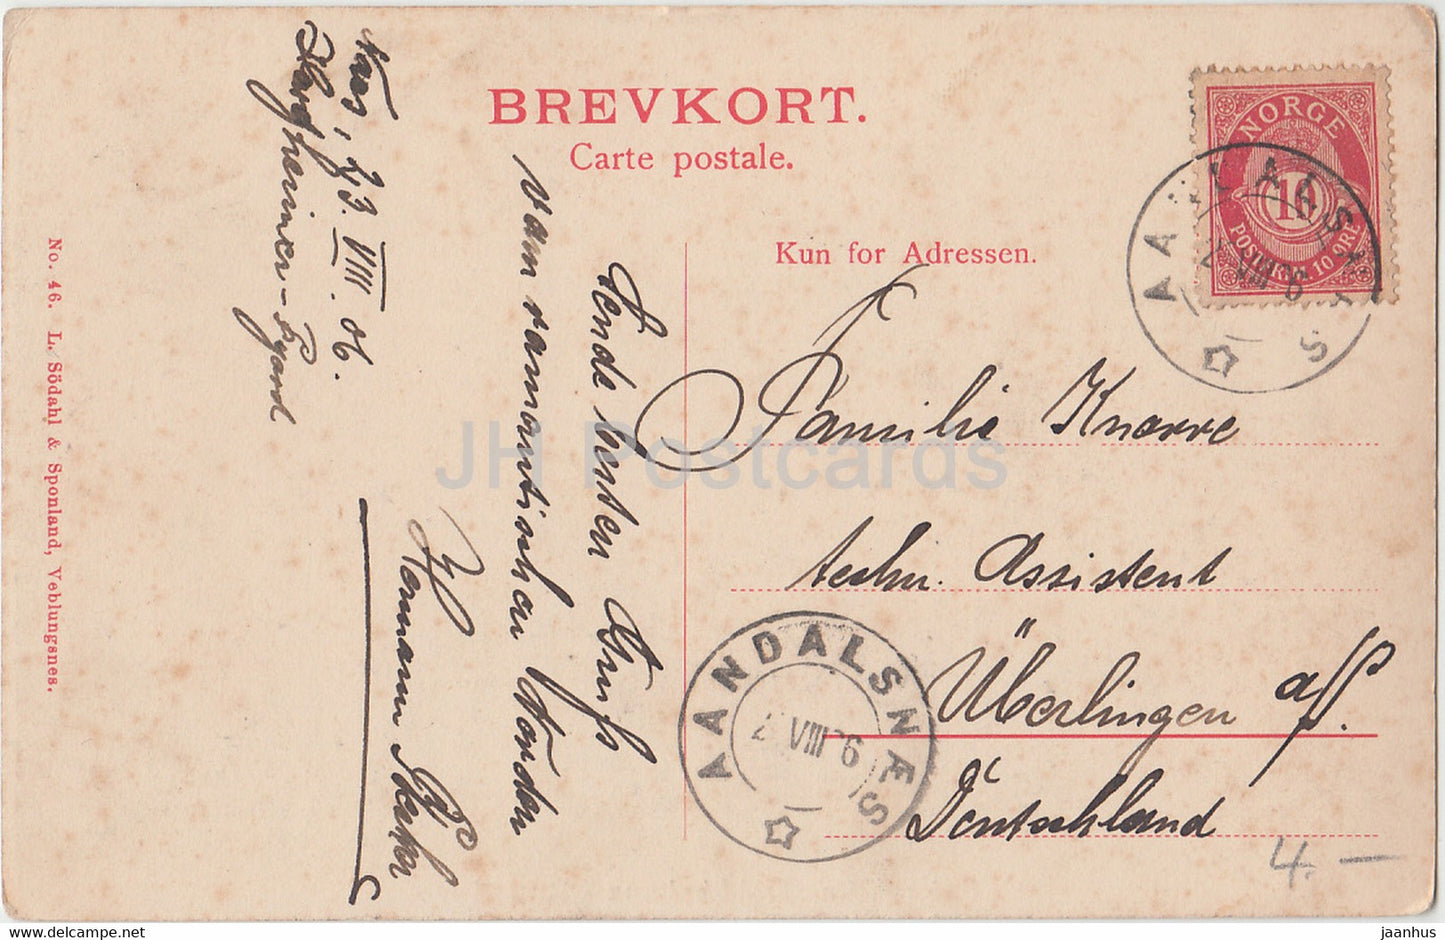 BREVKORT.
Carte postale.
Kun for Adressen.
NORGE
10
POSTFRIM. 10 ØRE
AANDALSNÆS
VIII 6
Familie Knorre
techn. Assistent
Überlingen a/S.
Deutschland
AANDALSNÆS
VIII 6
Næs, 23. VIII. 06.
Sende besten Gruß
vom romantischen Norden
Hermann
No. 46. L. Södahl & Sponland, Veblungsnes.
4.—
JH Postcards
delcampe.net
jaanhus